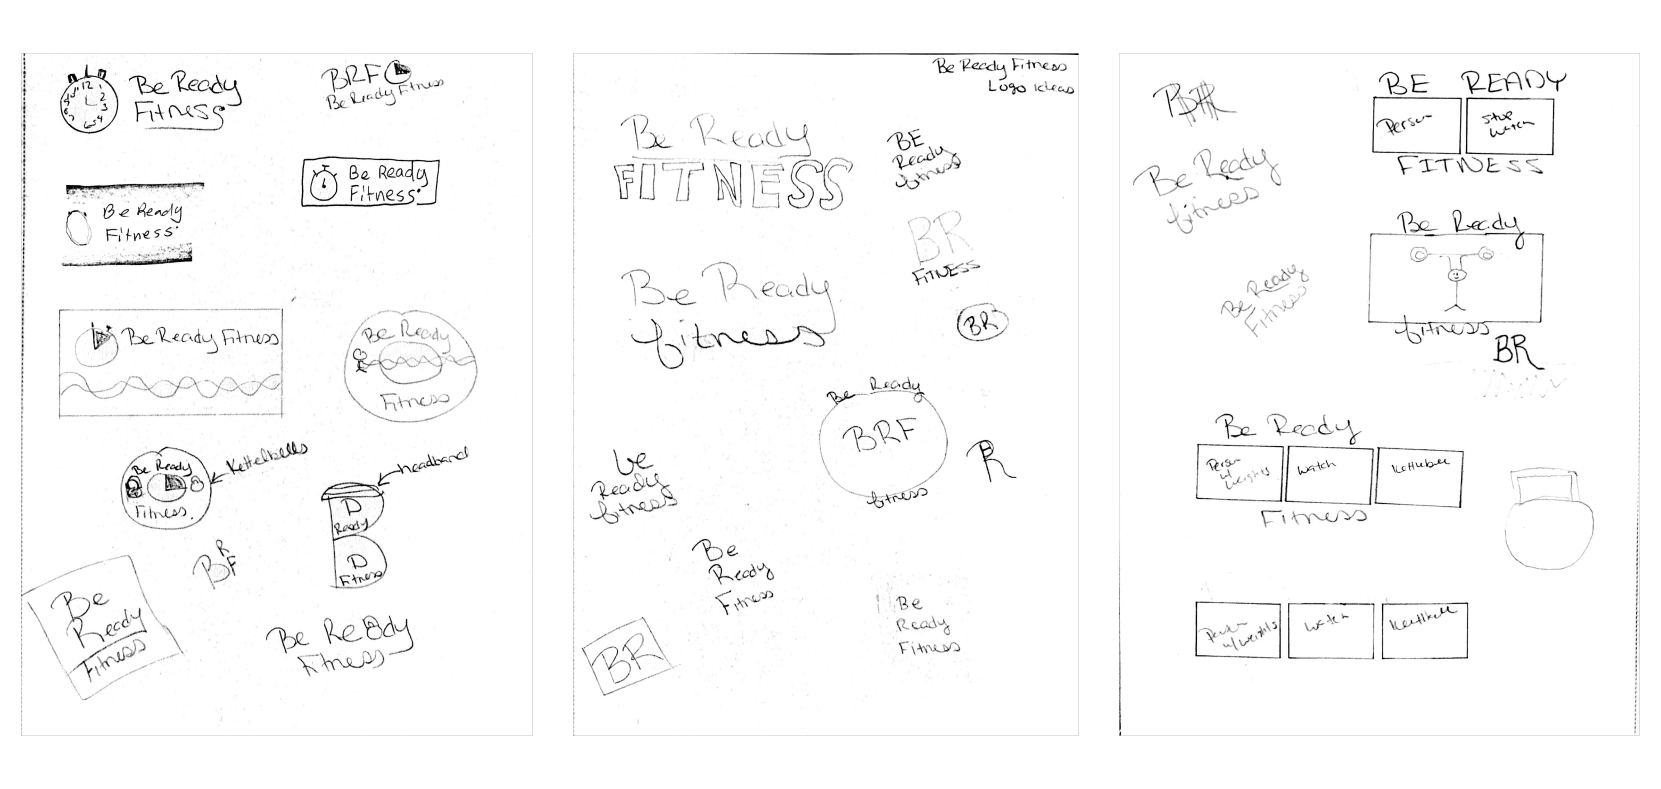 12
2
3
4
5
6
Be Ready
Fitness
BRF
Be Ready Fitness
Be Ready
Fitness
Be Ready
Fitness
Be Ready Fitness
Be Ready
Fitness
Kettelbells
Be Ready
Fitness
headband
D
Ready
D
Fitness
BRF
Be
Ready
Fitness
Be Ready
Fitness
Be Ready Fitness
Logo ideas
Be Ready
FITNESS
BE
Ready
fitness
BR
FITNESS
Be Ready
fitness
BR
Be Ready
BRF
fitness
R
be
Ready
fitness
Be
Ready
Fitness
Be
Ready
Fitness
BR
BE READY
Person
Stop
Watch
FITNESS
Be Ready
fitness
Be Ready
fitness
BR
Be Ready
Fitness
Be Ready
Person
w/
weights
watch
Fitness
w/weights
watch